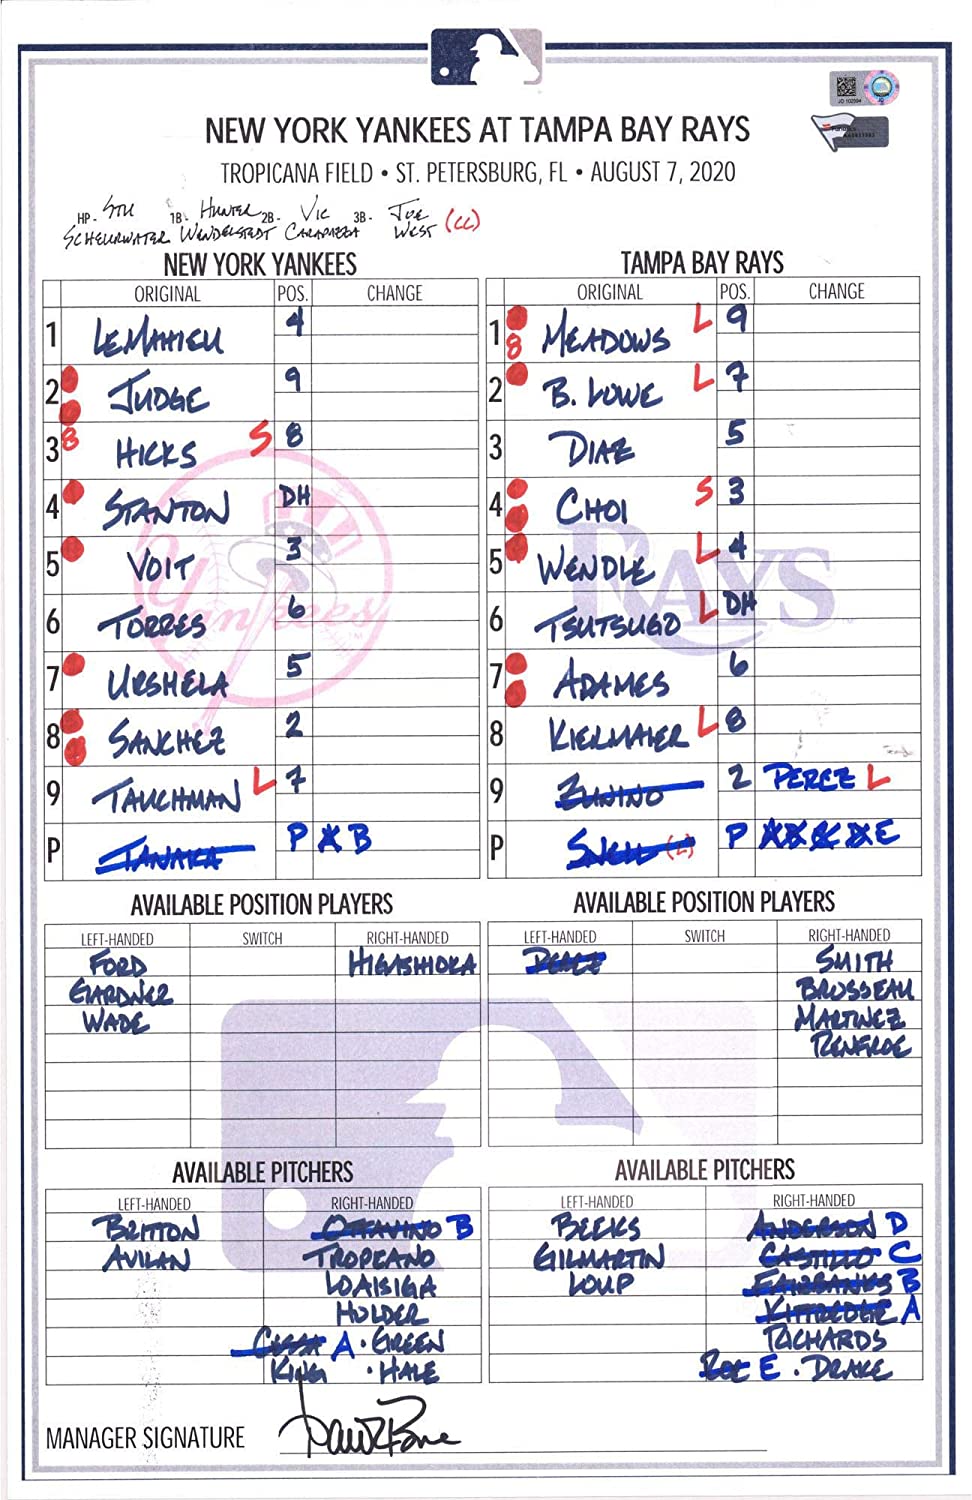 JO 102594
NEW YORK YANKEES AT TAMPA BAY RAYS
TROPICANA FIELD • ST. PETERSBURG, FL • AUGUST 7, 2020
HP- STU 1B- HUNTER 2B- VIC 3B- JOE (CC)
SCHEURWATER WENDELSTEDT CARAPAZZA WEST
NEW YORK YANKEES
ORIGINAL POS. CHANGE
1 LEMAHIEU 4
2 JUDGE 9
3 8 HICKS S 8
4 STANTON DH
5 VOIT 3
6 TORRES 6
7 URSHELA 5
8 SANCHEZ 2
9 TAUCHMAN L 7
P TANAKA P A B
TAMPA BAY RAYS
ORIGINAL POS. CHANGE
1 8 MEADOWS L 9
2 B. LOWE L 7
3 DIAZ 5
4 CHOI S 3
5 WENDLE L 4
6 TSUTSUGO L DH
7 ADAMES 6
8 KIERMAIER L 8
9 ZUNINO 2 PEREZ L
P SNELL (L) P A B C D E
Yankees
RAYS
AVAILABLE POSITION PLAYERS
LEFT-HANDED SWITCH RIGHT-HANDED
FORD HIGASHIOKA
GARDNER
WADE
AVAILABLE POSITION PLAYERS
LEFT-HANDED SWITCH RIGHT-HANDED
PEREZ SMITH
BROSSEAU
MARTINEZ
RENFROE
AVAILABLE PITCHERS
LEFT-HANDED RIGHT-HANDED
BRITTON OTTAVINO B
AVILAN TROPEANO
LOAISIGA
HOLDER
CESSA A · GREEN
KING · HALE
AVAILABLE PITCHERS
LEFT-HANDED RIGHT-HANDED
BEEKS ANDERSON D
GILMARTIN CASTILLO C
LOUP FAIRBANKS B
KITTREDGE A
RICHARDS
ROE E · DRAKE
MANAGER SIGNATURE